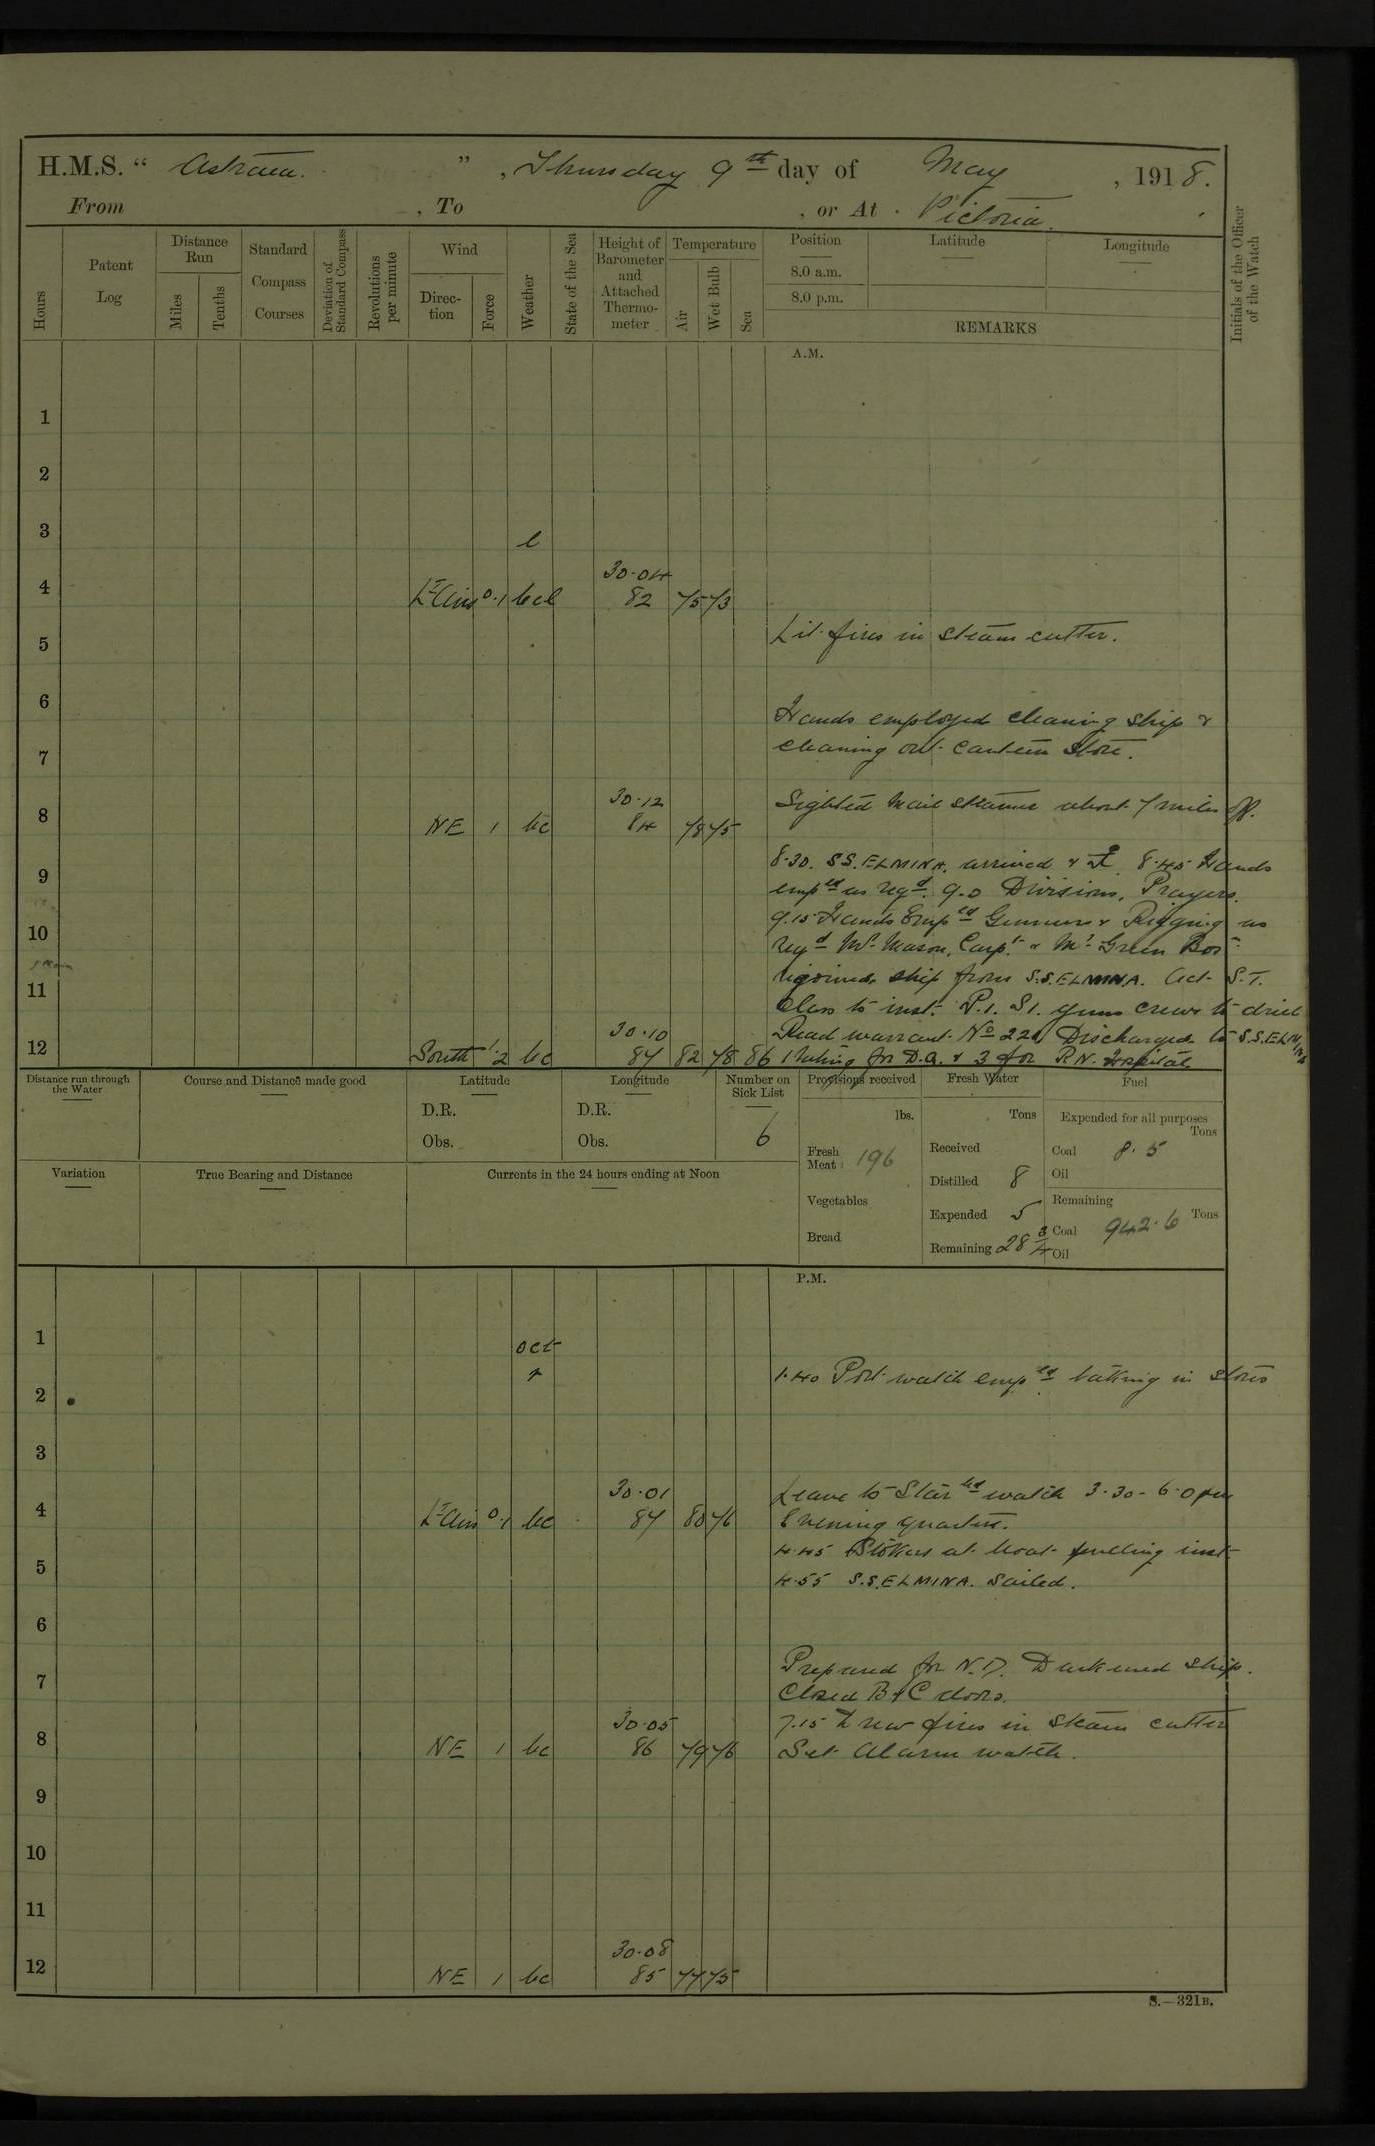 H.M.S. “ Astraea. ”, Thursday 9th day of May, 1918.
From , To , or At Victoria.
Hours
Patent Log
Distance Run
Miles
Tenths
Standard Compass Courses
Deviation of Standard Compass
Revolutions per minute
Wind
Direc-tion
Force
Weather
State of the Sea
Height of Barometer and Attached Thermo-meter
Temperature
Air
Wet Bulb
Sea
Position
8.0 a.m.
8.0 p.m.
Latitude
Longitude
REMARKS
Initials of the Officer of the Watch
A.M.
1
2
3 l
30.04
4 Lt Airs 0.1 bcl 82 75 73
Lit fires in steam cutter.
5
6
Hands employed cleaning ship &
7 cleaning out canteen store.
30.12 Sighted Mail steamer about 7 miles off.
8 NE 1 bc 84 78 75
8.30. SS. ELMINA. arrived & 8.45 Hands
9 empld as reqd. 9.0 Divisions, Prayers.
9.15 Hands Empld Gunnery & Rigging as
10 reqd Mr. Mason, Carpr. & Mr Green Bosn.
rejoined ship from S.S. ELMINA. Act. S.T.
11 Class to inst. P.1. S1. guns crews to drill
30.10 Read warrant No 220 Discharged to S.S. ELMINA
12 South 1.2 bc 87 82 78 86 1 rating for D.Q. & 3 for R.N. Hospital
Distance run through the Water
Course and Distance made good
Latitude
D.R.
Obs.
Longitude
D.R.
Obs.
Number on Sick List
6
Provisions received
lbs.
Fresh Meat 196
Vegetables
Bread
Fresh Water
Tons
Received
Distilled 8
Expended 5
Remaining 28 3/4
Fuel
Expended for all purposes
Tons
Coal 8.5
Oil
Remaining
Coal 942.6 Tons
Oil
Variation
True Bearing and Distance
Currents in the 24 hours ending at Noon
P.M.
1
oct
r 1.40 Port watch empld taking in stores
2
3
30.01 Leave to Starbd watch 3.30 - 6.0 pm
4 Lt Airs 0.1 bc 87 80 76 Evening quarters.
4.45 Stokers at boat pulling inst
5 4.55 S.S. ELMINA. Sailed.
6
Prepared for N.D. Darkened ship.
7 Closed B & C doors.
30.05 7.15 Drew fires in steam cutter
8 NE 1 bc 86 79 76 Set Alarm watch.
9
10
11
30.08
12 NE 1 bc 85 77 75
S.—321B.